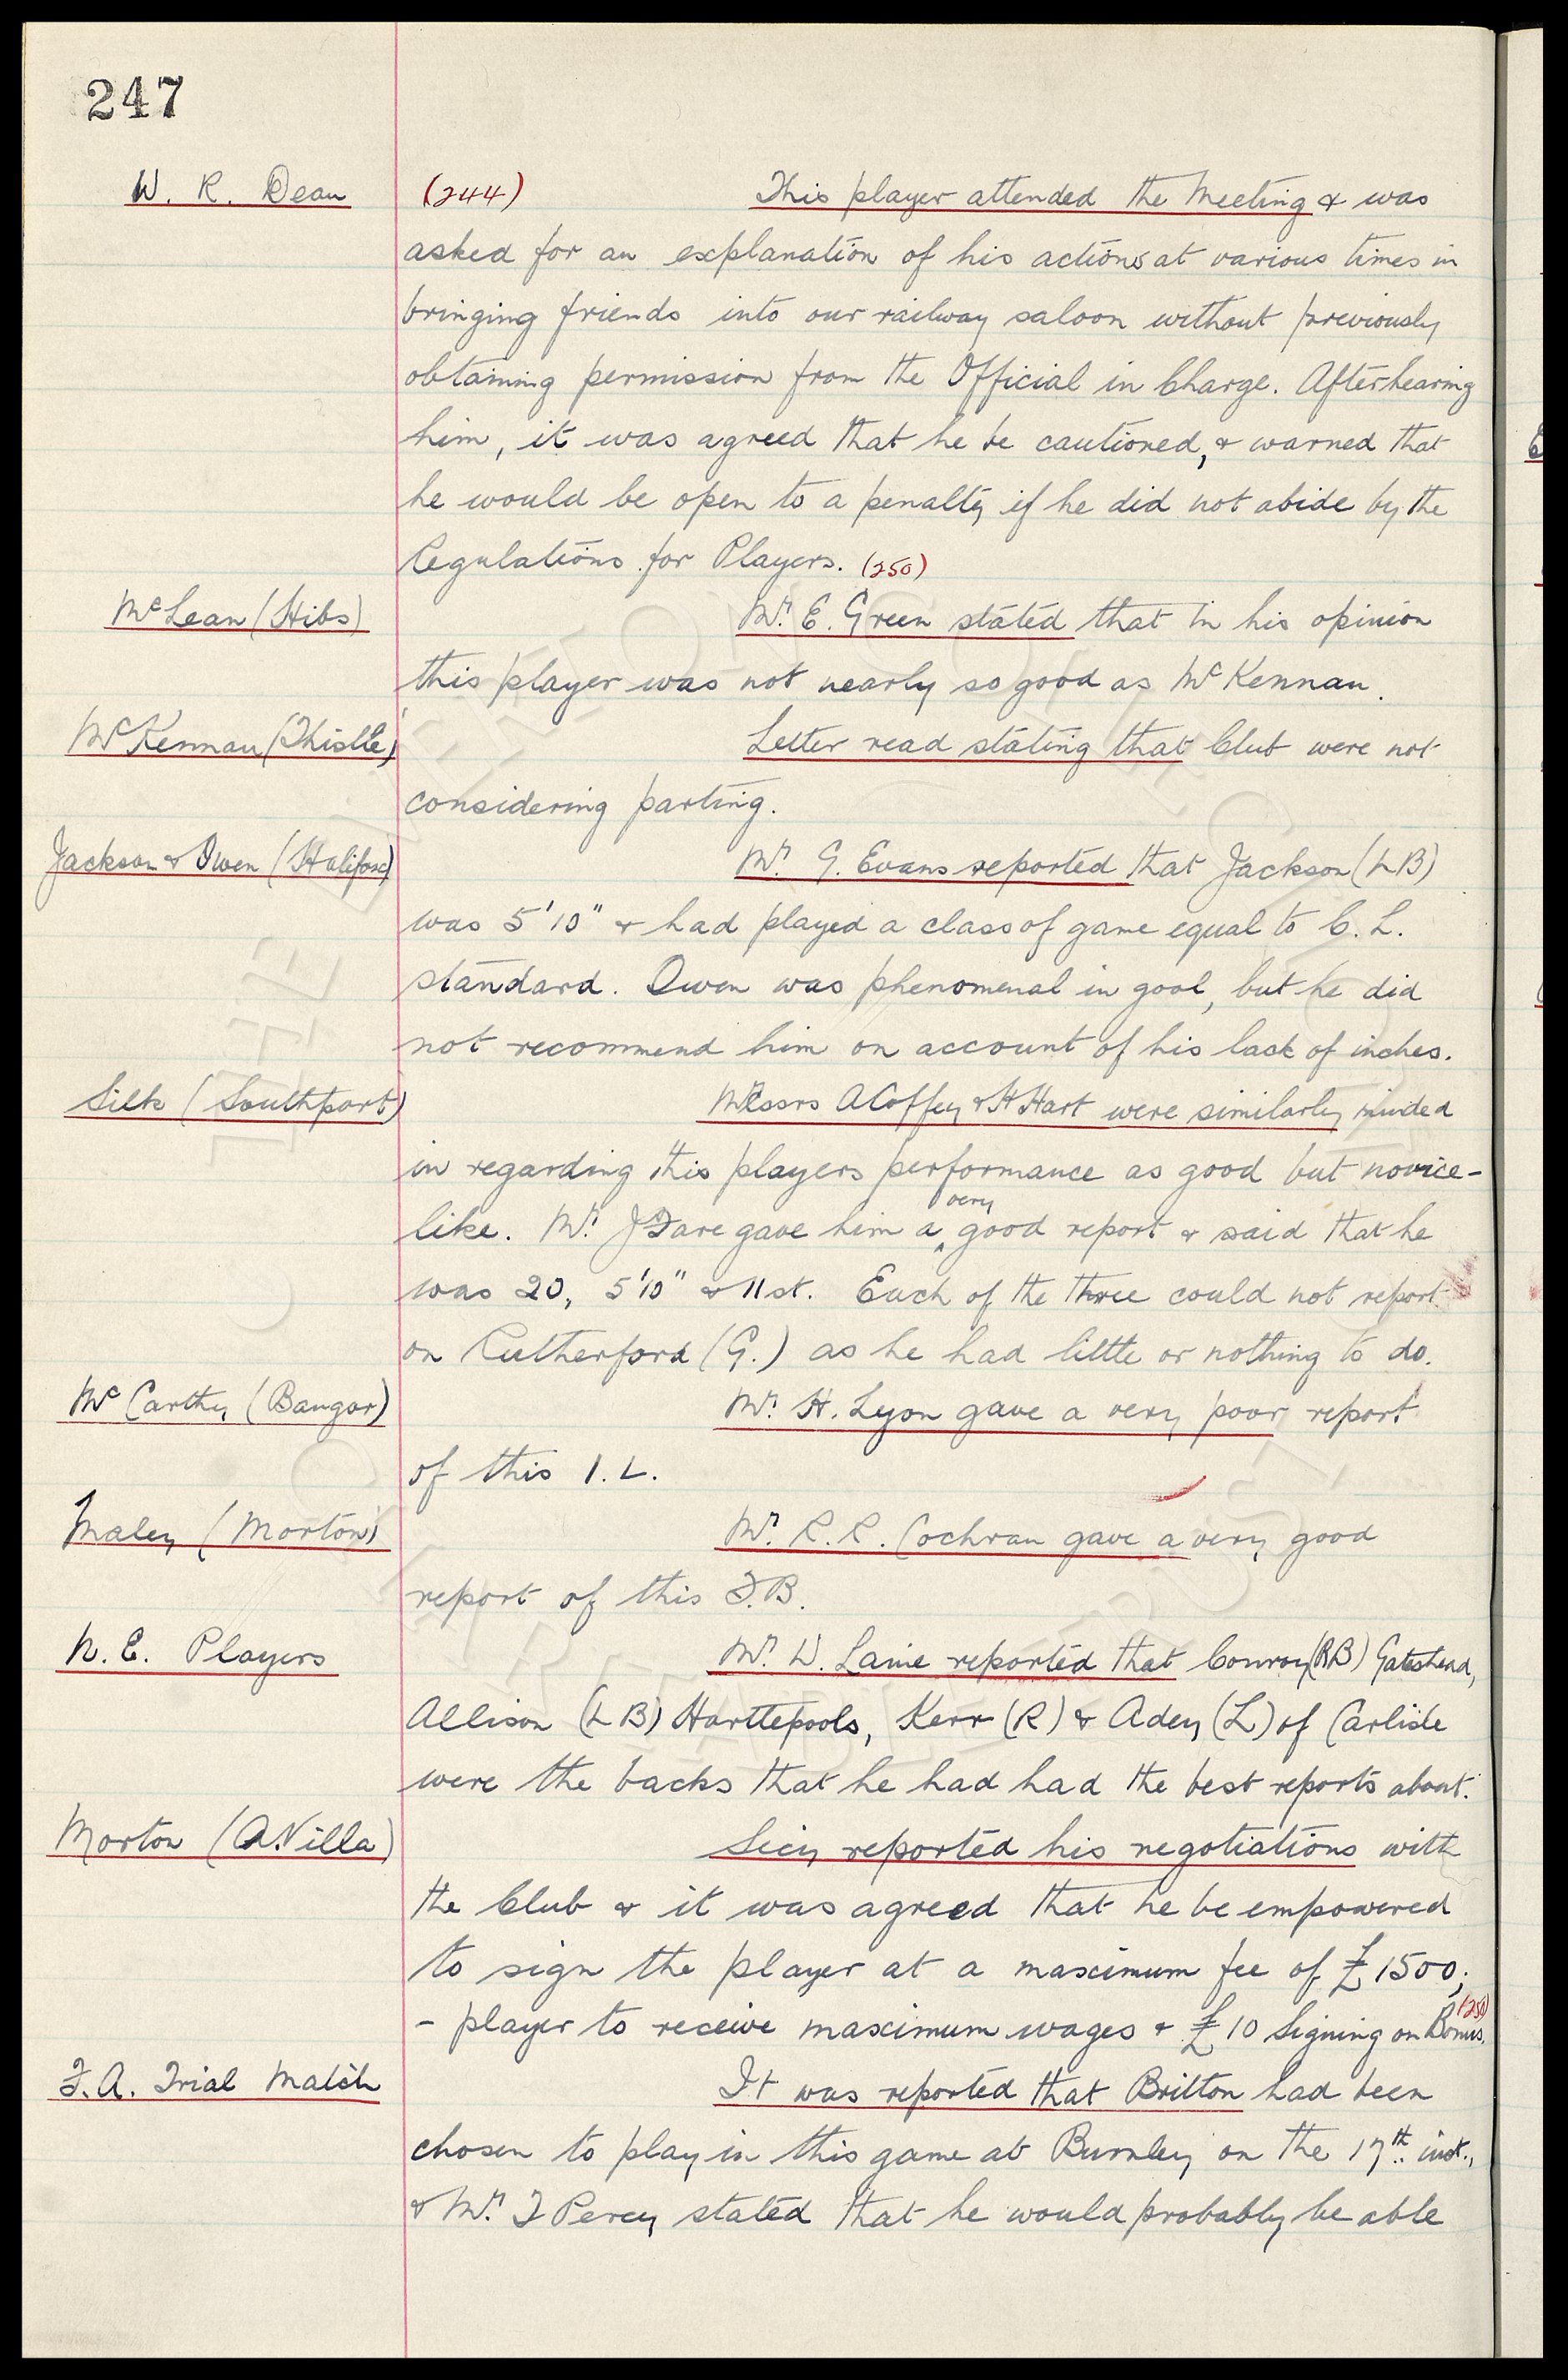 247
W. R. Dean (244) This player attended the Meeting & was
asked for an explanation of his actions at various times in
bringing friends into our railway saloon without previously
obtaining permission from the Official in Charge. After hearing
him, it was agreed that he be cautioned, & warned that
he would be open to a penalty if he did not abide by the
Regulations for Players. (250)
McLean (Hibs) Mr. E. Green stated that in his opinion
this player was not nearly so good as McKennan.
McKennan (Thistle) Letter read stating that Club were not
considering parting.
Jackson & Owen (Halifax) Mr. G. Evans reported that Jackson (LB)
was 5'10" & had played a class of game equal to C. L.
standard. Owen was phenomenal in goal, but he did
not recommend him on account of his lack of inches.
Silk (Southport) Messrs A Coffey & H Hart were similarly minded
in regarding this players performance as good but novice-
like. Mr. J Fare gave him a very good report & said that he
was 20, 5'10" & 11st. Each of the three could not report
on Rutherford (G.) as he had little or nothing to do.
McCarthy (Bangor) Mr. H. Lyon gave a very poor report
of this I. L.
Maley (Morton) Mr. R. R. Cochran gave a very good
report of this F.B.
N. E. Players Mr. W. Laine reported that Conroy (RB) Gateshead,
Allison (LB) Hartlepools, Kerr (R) & Adey (L) of Carlisle
were the backs that he had had the best reports about.
Morton (A.Villa) Secy reported his negotiations with
the Club & it was agreed that he be empowered
to sign the player at a maximum fee of £1500;
- player to receive maximum wages & £10 Signing on Bonus. (250)
F.A. Trial Match It was reported that Britton had been
chosen to play in this game at Burnley on the 17th. inst.,
& Mr. T Percy stated that he would probably be able